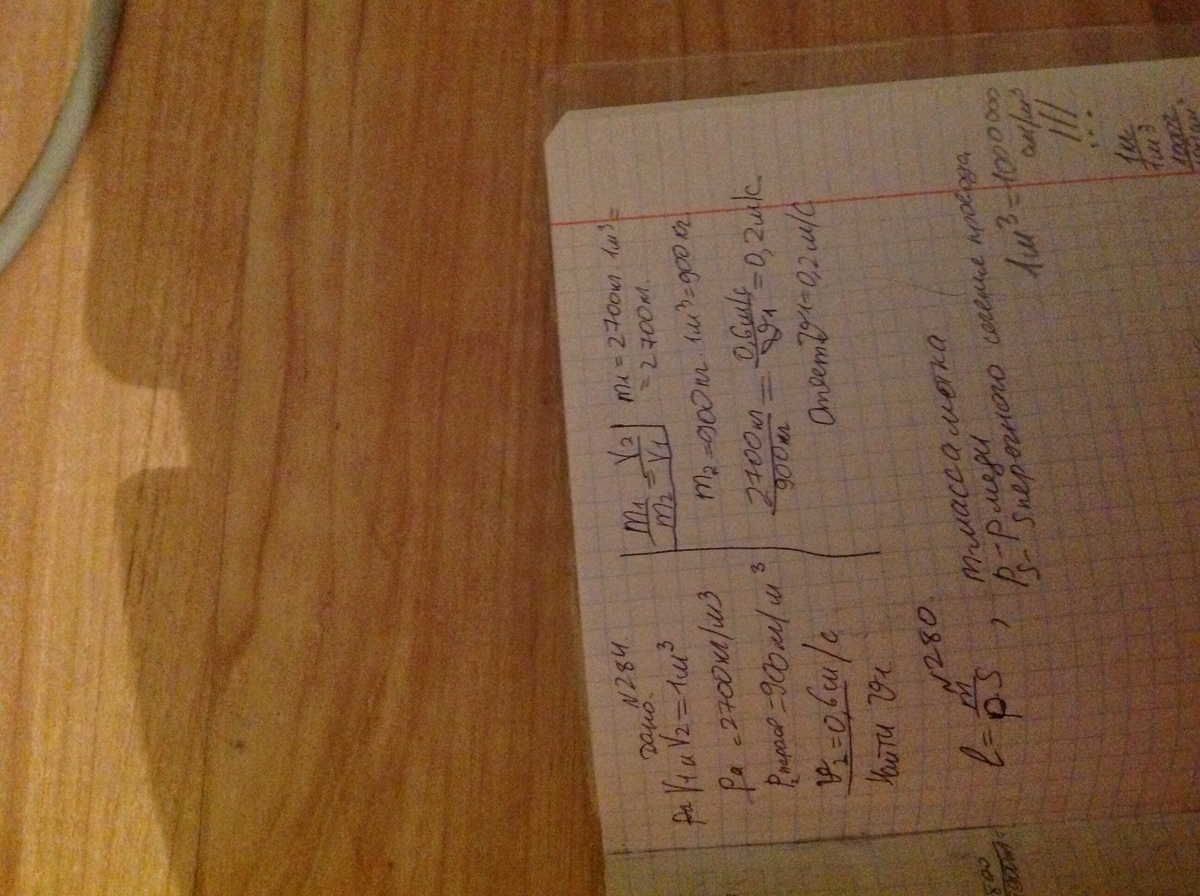 N284
дано.
V1 и V2 = 1м³
ρа = 2700кг/м3
ρ параф = 900кг/м³
v2 = 0,6м/с
Найти v1
m1/m2 = V2/V1
m1 = 2700кг · 1м³ =
= 2700кг.
m2 = 900кг · 1м³ = 900кг
2700кг/900кг = 0,6м/с/v1 = 0,2м/с.
Ответ v1 = 0,2м/с
N280.
l = m/ρ·S ,
m-масса мотка
ρ - ρ меди
S - Sпоперечного сечение провода
1м³ = 1000 000
см/м³
!!!